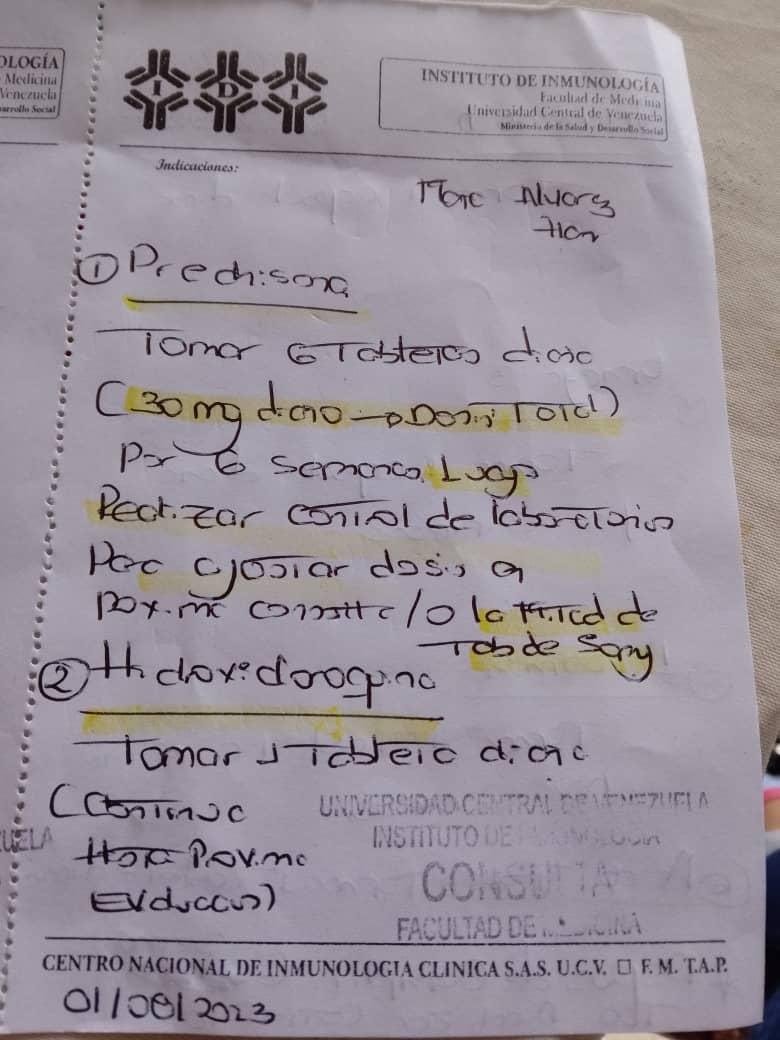 OLOGÍA
Medicina
Venezuela
sarrollo Social
I D I
INSTITUTO DE INMUNOLOGÍA
Facultad de Medicina
Universidad Central de Venezuela
Ministerio de la Salud y Desarrollo Social
Indicaciones:
① Prednisona
Tomar 6 Tabletas diaria
(30 mg diario → Dosis Total)
Por 6 semanas. Luego
Realizar control de laboratorios
Para ajustar dosis en
Próxima consulta / o la mitad de
Tab de 5mg
② Hidroxicloroquina
Tomar 1 Tableta diaria
(Continua
Hasta Próxima
Evaluación)
UNIVERSIDAD CENTRAL DE VENEZUELA
UELA
INSTITUTO DE
CONSULTA
FACULTAD DE MEDICINA
CENTRO NACIONAL DE INMUNOLOGIA CLINICA S.A.S. U.C.V. □ F. M. T.A.P.
01/08/2023